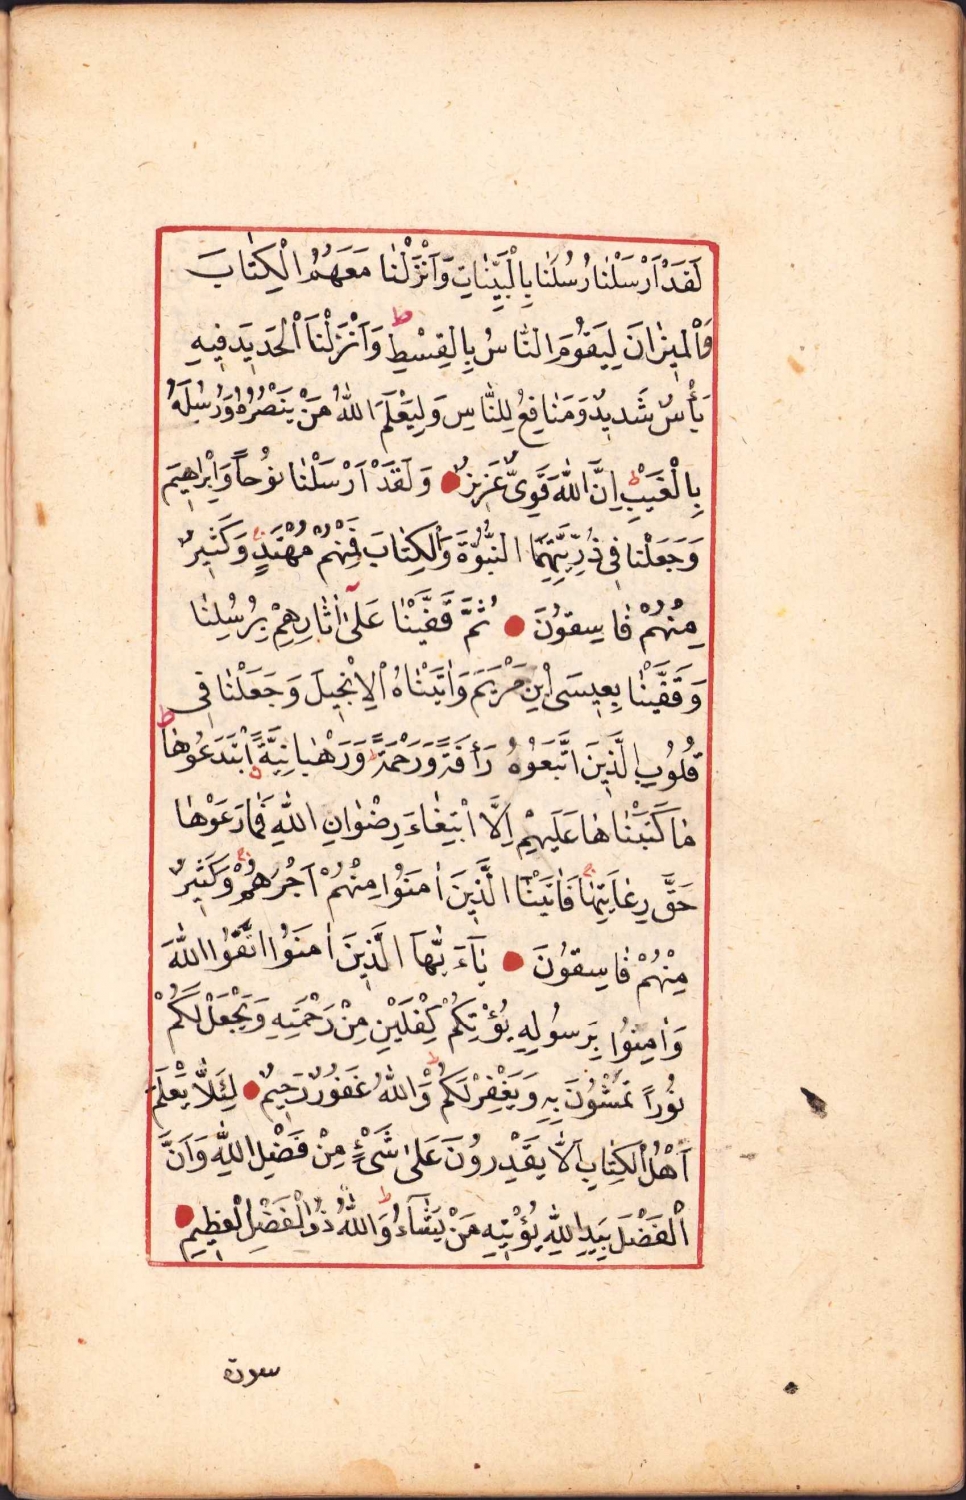 لَقَدْ اَرْسَلْنَا رُسُلَنَا بِالْبَيِّنَاتِ وَاَنْزَلْنَا مَعَهُمُ الْكِتَابَ
وَالْمِيزَانَ لِيَقُومَ النَّاسُ بِالْقِسْطِ ط وَاَنْزَلْنَا الْحَدِيدَ فِيهِ
بَأْسٌ شَدِيدٌ وَمَنَافِعُ لِلنَّاسِ وَلِيَعْلَمَ اللّٰهُ مَنْ يَنْصُرُهُ وَرُسُلَهُ
بِالْغَيْبِ ط اِنَّ اللّٰهَ قَوِىٌّ عَزِيزٌ وَلَقَدْ اَرْسَلْنَا نُوحاً وَاِبْرٰهِيمَ
وَجَعَلْنَا فِى ذُرِّيَّتِهِمَا النُّبُوَّةَ وَالْكِتَابَ فَمِنْهُمْ مُهْتَدٍ ج وَكَثِيرٌ
مِنْهُمْ فَاسِقُونَ ثُمَّ قَفَّيْنَا عَلٰى اٰثَارِهِمْ بِرُسُلِنَا
وَقَفَّيْنَا بِعِيسَى ابْنِ مَرْيَمَ وَاٰتَيْنَاهُ الْاِنْجِيلَ وَجَعَلْنَا فِى
قُلُوبِ الَّذِينَ اتَّبَعُوهُ رَأْفَةً وَرَحْمَةً ط وَرَهْبَانِيَّةً ابْتَدَعُوهَا ط
مَا كَتَبْنَاهَا عَلَيْهِمْ اِلَّا ابْتِغَاءَ رِضْوَانِ اللّٰهِ فَمَا رَعَوْهَا
حَقَّ رِعَايَتِهَا ج فَاٰتَيْنَا الَّذِينَ اٰمَنُوا مِنْهُمْ اَجْرَهُمْ ج وَكَثِيرٌ
مِنْهُمْ فَاسِقُونَ يَآءَيُّهَا الَّذِينَ اٰمَنُوا اتَّقُوا اللّٰهَ
وَاٰمِنُوا بِرَسُولِهِ يُؤْتِكُمْ كِفْلَيْنِ مِنْ رَحْمَتِهِ وَيَجْعَلْ لَكُمْ
نُوراً تَمْشُونَ بِهِ وَيَغْفِرْ لَكُمْ ط وَاللّٰهُ غَفُورٌ رَحِيمٌ لِئَلَّا يَعْلَمَ
اَهْلُ الْكِتَابِ اَلَّا يَقْدِرُونَ عَلٰى شَىْءٍ مِنْ فَضْلِ اللّٰهِ وَاَنَّ
الْفَضْلَ بِيَدِ اللّٰهِ يُؤْتِيهِ مَنْ يَشَآءُ ط وَاللّٰهُ ذُو الْفَضْلِ الْعَظِيمِ
سورة